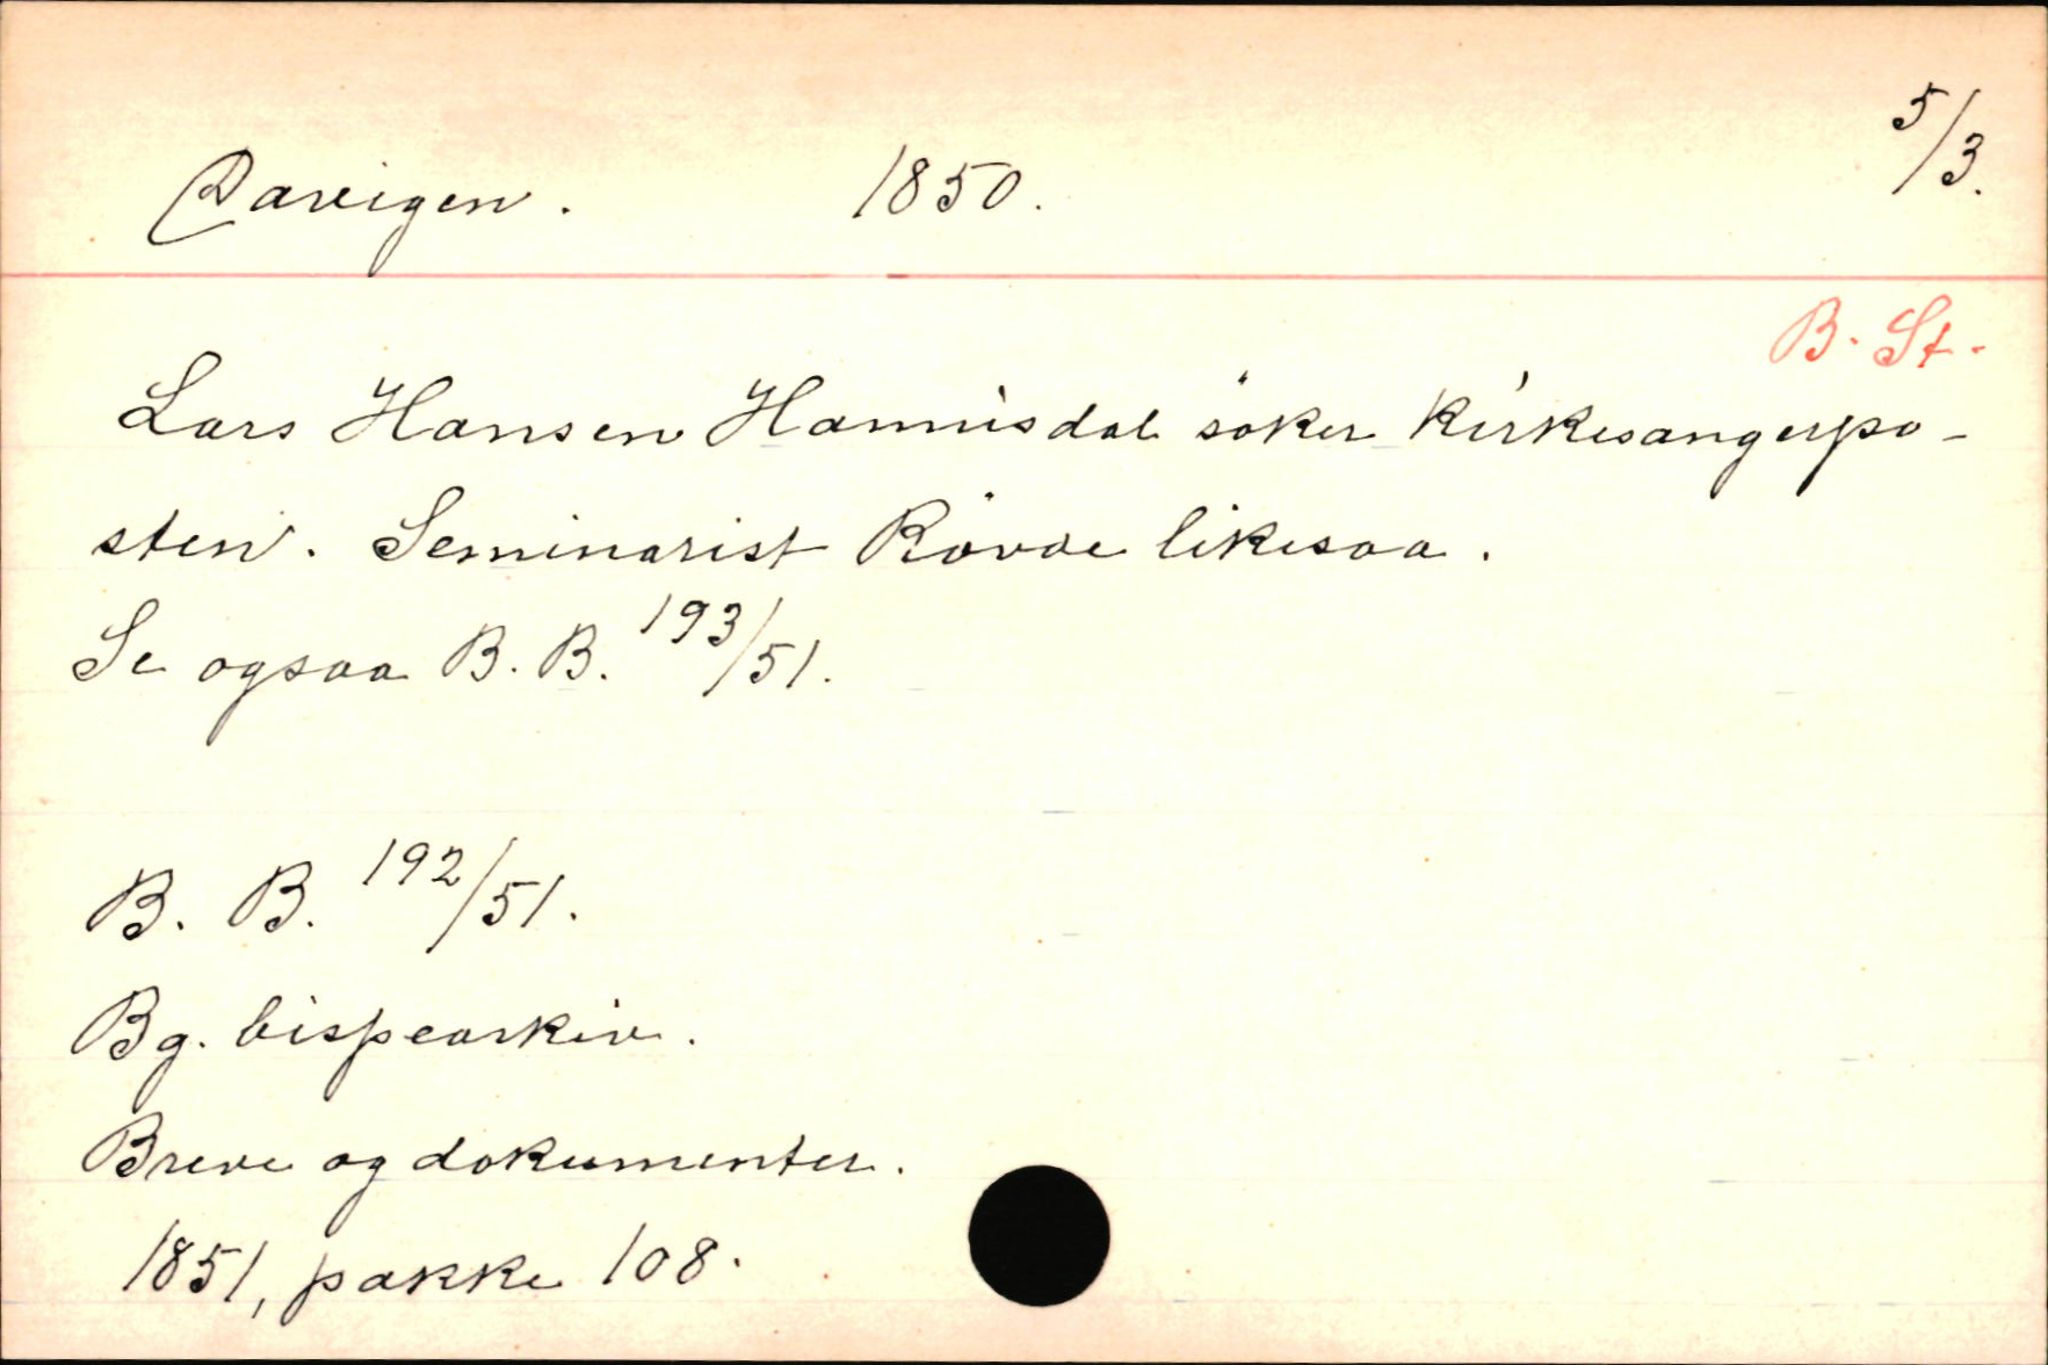 Davigen. 1850. 5/3.
B. St.
Lars Hansen Hannisdal söker kirkesangerpo-
sten. Seminarist Rövde likesaa.
Se ogsaa B. B. 193/51.
B. B. 192/51.
Bg. bispearkiv.
Breve og dokumenter.
1851, pakke 108.